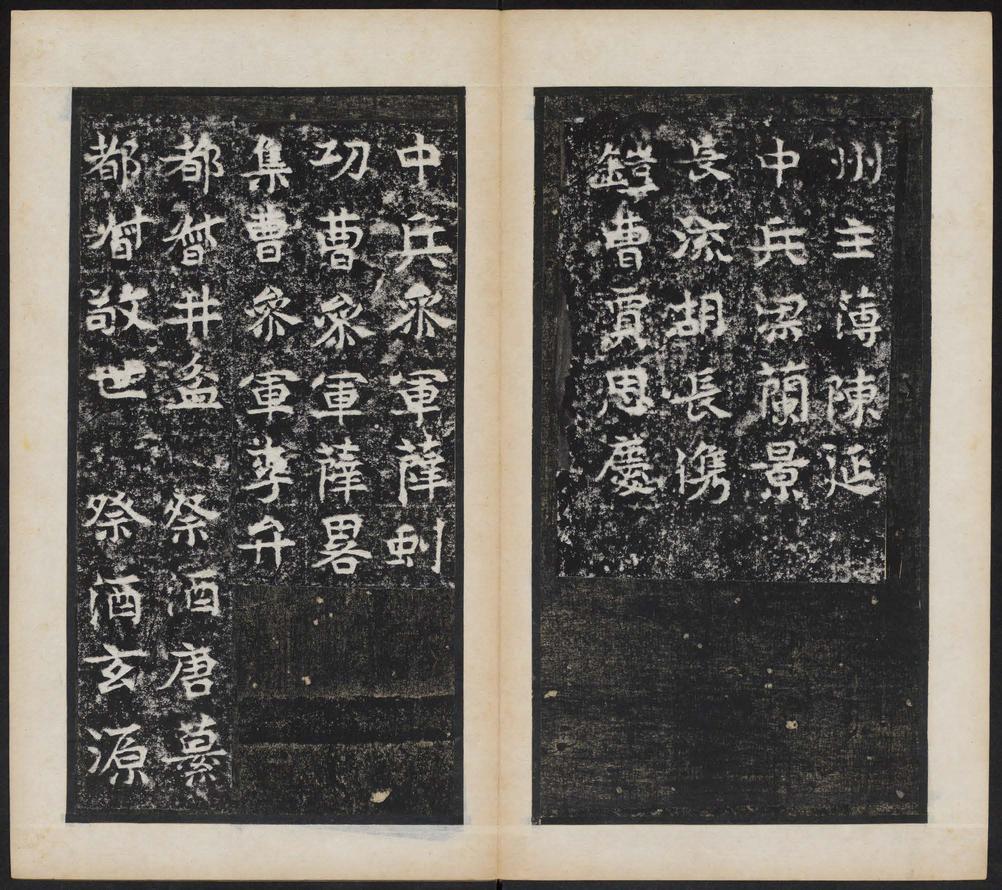 州主薄陳延
中兵梁蘭景
長流胡長儁
鎧曹賈思慶
中兵參軍薛
功曹參軍薛畧
集曹參軍李弁
都督井孟 祭酒唐纂
都督敬世 祭酒玄源